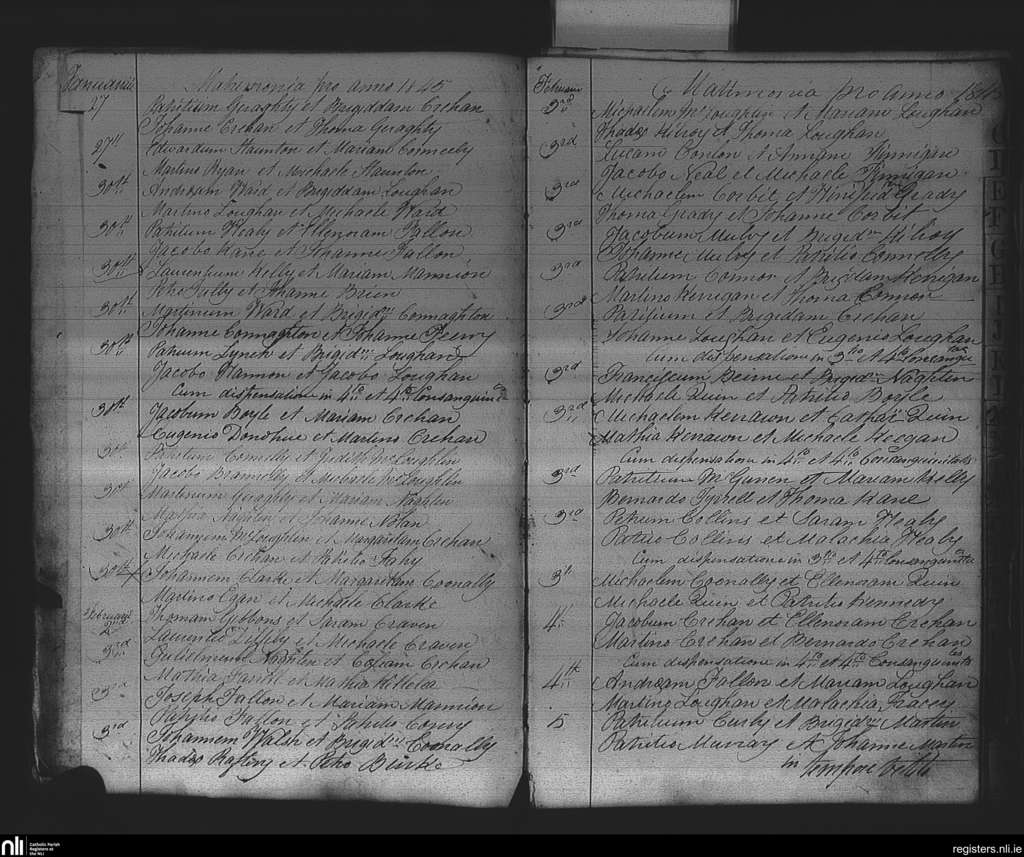 Januarii
Matrimonia pro anno 1845
27 Patritium Geraghty et Brigiddam Crehan
Johanne Crehan et Thoma Geraghty
27th Edwardum Staunton et Mariam Conneely
Martino Ryan et Michaele Staunton
30th Andream Ward et Brigiddam Loughan
Martino Loughan et Michaele Ward
30th Patritium Healy et Ellenoram Fallon
Jacobo Kane et Johanne Fallon
30th Laurentium Kelly et Mariam Mannion
Petro Fally et Johanne Brien
30th Martinum Ward et Brigidm Connaghton
Johanne Connaghton et Johanne Feeny
30th Patrium Lynch et Brigidm Loughan
Jacobo Hannon et Jacobo Loughan
Cum dispensatione in 4to et 4to Consanguin
30th Jacobum Boyle et Mariam Crehan
Eugenio Donohue et Martino Crehan
30th Patritium Connelly et Judith McLoughlin
Jacobo Brannelly et Michaele McLoughlin
30th Martinum Geraghty et Mariam Naghtin
Mathia Naghtin et Johanne Nolan
30th Johannem McLoughlin et Margaritam Crehan
Michaele Crehan et Patritio Fahy
30th Johannem Clarke et Margaritam Connally
Martino Egan et Michaele Clarke
Februarii
2 Thomam Gibbons et Saram Craven
Laurentio Ziffley et Michaele Craven
3rd Gulielmum Naghten et Celiam Crehan
Mathia Farrell et Mathia Killilea
3rd Joseph Fallon et Mariam Mannion
Fallon et Patritio Conry
3rd Johannem Walsh et Brigidm Connally
Thadeo Raftery et Petro Burke
Februarii
Matrimonia pro anno 184
3rd Michaelem McLoughlin et Mariam Loughan
Thadeo Kilroy et Thoma Loughan
3rd Lucam Conlon et Annam Finnigan
Jacobo Neal et Michaele Finnigan
3rd Michaelem Corbit et Winifrid Geady
Thoma Geady et Johanne Corbit
3rd Jacobum Mulvy et Brigidm Kilroy
Johanne Mulvy et Patritio Connelly
3rd Patritium Connor et Brigidam Kerrigan
Martino Kerrigan et Thoma Connor
3rd Patritium et Brigidam Crehan
Johanne Loughan et Eugenio Loughan
Cum dispensatione in 3tio et 4to Consangui
3rd Franciscum Beirne et Brigidm Naghten
Michaele Quin et Patritio Boyle
3rd Michaelem Kenawn et Quin
Mathia Kenawn et Michaele Keegan
Cum dispensatione in 4to et 4to Consanguinitatis
3rd Patritium McGunen et Mariam Kelly
Bernardo Tyrrell et Thoma Kane
3rd Petrum Collins et Saram Healy
Patrio Collins et Malachia Healy
Cum dispensatione in 3tio et 4to Consanguinitatis
3d Michaelem Connally et Ellenoram Quin
Michaele Quin et Patritio Kennedy
4 Jacobum Crehan et Ellenoram Crehan
Martino Crehan et Bernardo Crehan
Cum dispensatione in 4to et 4to Consanguinitatis
4th Andream Fallon et Mariam Loughan
Martino Loughan et Malachia Tracey
5 Patritium Cusby et Brigidm Martin
Patritio Murray et Johanne Martin
in tempore vetito
nli
Catholic Parish
Registers at
the NLI
registers.nli.ie